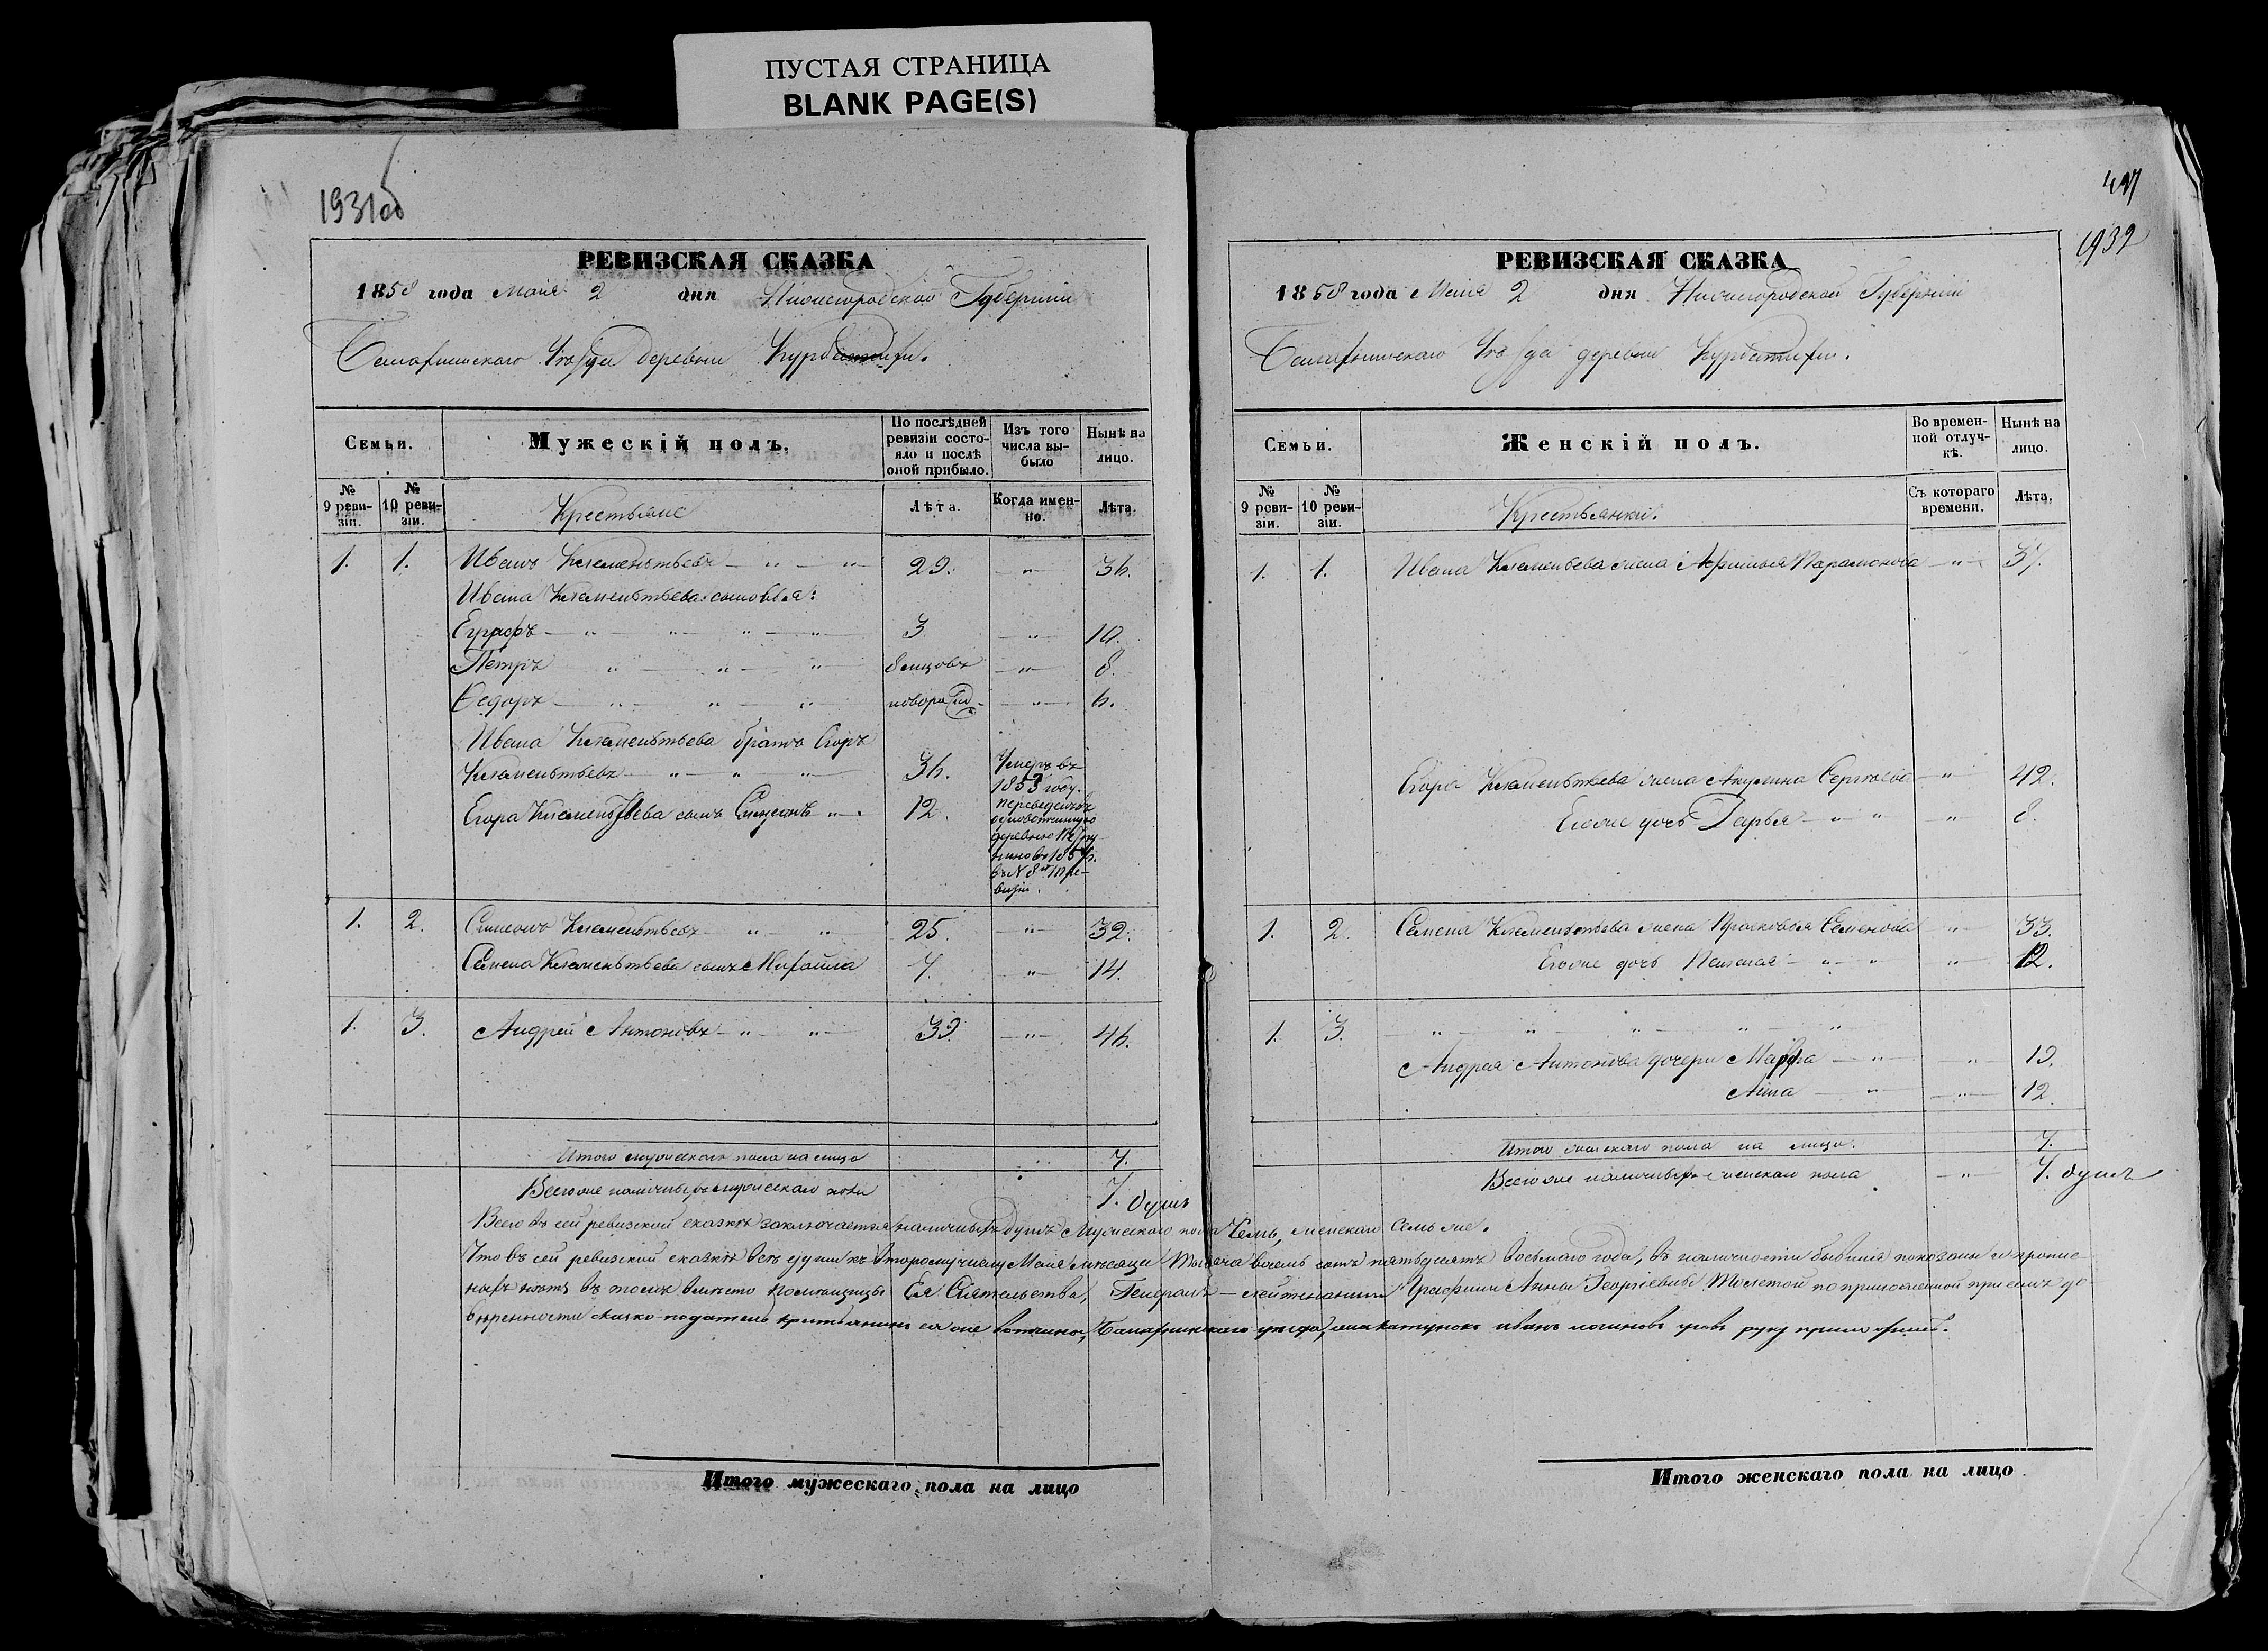 ПУСТАЯ СТРАНИЦА
BLANK PAGE(S)
1931об
РЕВИЗСКАЯ СКАЗКА
1858 года Маія 2 дня Нижегородской Губерніи
Балахнинскаго Уѣзда деревни
Семьи.
Мужескій полъ.
По послѣдней ревизіи состояло и послѣ оной прибыло.
Изъ того числа выбыло
Нынѣ на лицо.
№ 9 ревизіи.
№ 10 ревизіи.
Крестьяне
Лѣта.
Когда именно.
Лѣта.
1. 1. Иванъ Клементьевъ — " — " 29. — " — 36.
Ивана Клементьева сыновья:
Еграфъ — " — " — " — " 3 — " — 10.
Петръ " — " — " 8 мцовъ — " — 8.
Ѳедоръ — " — " — " новорож — " — 6.
Ивана Клементьева братъ Егоръ
Клементьевъ — " — " " 36. Умеръ въ 1853 году.
Егора Клементьева сынъ Симеонъ " 12. переведенъ въ одновотчинную деревню въ № 8й 10 ревизіи.
1. 2. Симеонъ Клементьевъ — " — " 25. — " — 32.
Семена Клементьева сынъ Михайла 7. " 14.
1. 3. Андрей Антоновъ — " " 39. — " — 46.
Итого мужескаго пола на лицо 7.
Всего же наличныхъ мужескаго пола 7. душъ
497
1932
РЕВИЗСКАЯ СКАЗКА
1858 года Маія 2 дня Нижегородской Губерніи
Балахнинскаго Уѣзда деревни
Семьи.
Женскій полъ.
Во временной отлучкѣ.
Нынѣ на лицо.
№ 9 ревизіи.
№ 10 ревизіи.
Крестьянки.
Съ котораго времени.
Лѣта.
1. 1. Ивана Клементьева жена Афимья Парамонова — " — 37.
Егора Клементьева жена Акулина Сергѣева — " 42.
Егоже дочь Дарья — " " " 8.
1. 2. Семена Клементьева жена Прасковья Семенова " 33.
Егоже дочь Пелагея — " — " " 12.
1. 3. " — " — " — " — "
Андрея Антонова дочери Марфа — " — " 19.
Анна — " — " — 12.
Итого женскаго пола на лицо. 7.
Всего же наличныхъ женскаго пола — " 7. душъ
Всего въ сей ревизской сказкѣ заключается наличныхъ душъ Мужескаго пола Семь, женскаго Семь же.
Что въ сей ревизской сказкѣ всѣ души къ второму числу Маія мѣсяца Тысяча восемь сотъ пятьдесятъ восьмаго года, въ наличности бывшія показаны и пропис
ныхъ нѣтъ въ томъ вмѣсто помѣщицы Ея Сіятельства, Генералъ-лейтенантши Графини Анны Георгіевны Толстой по приложенной при семъ до
вѣренности сказко-податель крестьянинъ ея же вотчины, Балахнинскаго уѣзда, иванъ руку приложилъ.
Итого мужескаго пола на лицо
Итого женскаго пола на лицо